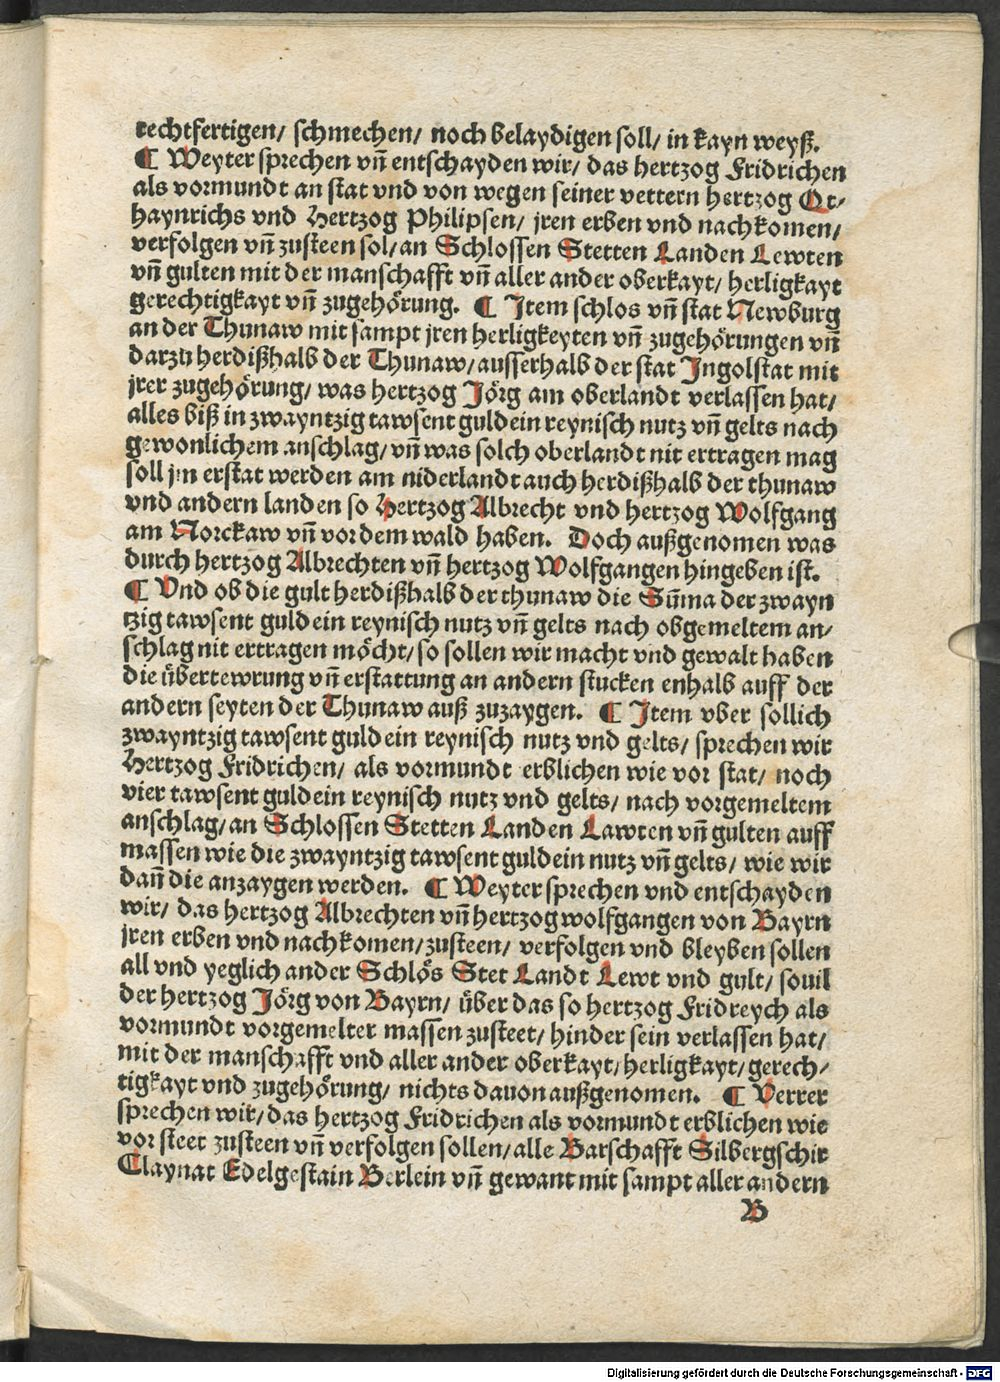 rechtfertigen/ schmechen/ noch belaydigen soll/ in kayn weyß.
¶ Weyter sprechen vn̄ entschayden wir/ das hertzog Fridrichen
als vormundt an stat vnd von wegen seiner vettern hertzog Ot-
haynrichs vnd Hertzog Philipsen/ jren erben vnd nachkomen/
verfolgen vn̄ zusteen sol/ an Schlossen Stetten Landen Lewten
vn̄ gulten mit der manschafft vn̄ aller ander oberkayt/ herligkayt
gerechtigkayt vn̄ zugehörung. ¶ Item schlos vn̄ stat Newburg
an der Thunaw mit sampt jren herligkeyten vn̄ zugehörungen vn̄
darzu herdißhalb der Thunaw/ ausserhalb der stat Ingolstat mit
jrer zugehörung/ was hertzog Jörg am oberlandt verlassen hat/
alles biß in zwayntzig tawsent guldein reynisch nutz vn̄ gelts nach
gewonlichem anschlag/ vn̄ was solch oberlandt nit ertragen mag
soll jm erstat werden am niderlandt auch herdißhalb der thunaw
vnd andern landen so Hertzog Albrecht vnd hertzog Wolfgang
am Norckaw vn̄ vor dem wald haben. Doch außgenomen was
durch hertzog Albrechten vn̄ hertzog Wolfgangen hingeben ist.
¶ Vnd ob die gult herdißhalb der thunaw die Sūma der zwayn
tzig tawsent guldein reynisch nutz vn̄ gelts nach obgemeltem an-
schlag nit ertragen möcht/ so sollen wir macht vnd gewalt haben
die übertewrung vn̄ erstattung an andern stucken enhalb auff der
andern seyten der Thunaw auß zuzaygen. ¶ Item vber sollich
zwayntzig tawsent guldein reynisch nutz vnd gelts/ sprechen wir
Hertzog Fridrichen/ als vormundt erblichen wie vor stat/ noch
vier tawsent guldein reynisch nutz vnd gelts/ nach vorgemeltem
anschlag/ an Schlossen Stetten Landen Lawten vn̄ gulten auff
massen wie die zwayntzig tawsent guldein nutz vn̄ gelts/ wie wir
dan̄ die anzaygen werden. ¶ Weyter sprechen vnd entschayden
wir/ das hertzog Albrechten vn̄ hertzog wolfgangen von Bayrn
jren erben vnd nachkomen/ zusteen/ verfolgen vnd bleyben sollen
all vnd yeglich ander Schlös Stet Landt Lewt vnd gult/ souil
der hertzog Jörg von Bayrn/ über das so hertzog Fridreych als
vormundt vorgemelter massen zusteet/ hinder sein verlassen hat/
mit der manschafft vnd aller ander oberkayt/ herligkayt/ gerech-
tigkayt vnd zugehörung/ nichts dauon außgenomen. ¶ Verrer
sprechen wir/ das hertzog Fridrichen als vormundt erblichen wie
vor steet zusteen vn̄ verfolgen sollen/ alle Barschafft Silbergschir
Claynat Edelgestain Berlein vn̄ gewant mit sampt aller andern
B
Digitalisierung gefördert durch die Deutsche Forschungsgemeinschaft - DFG